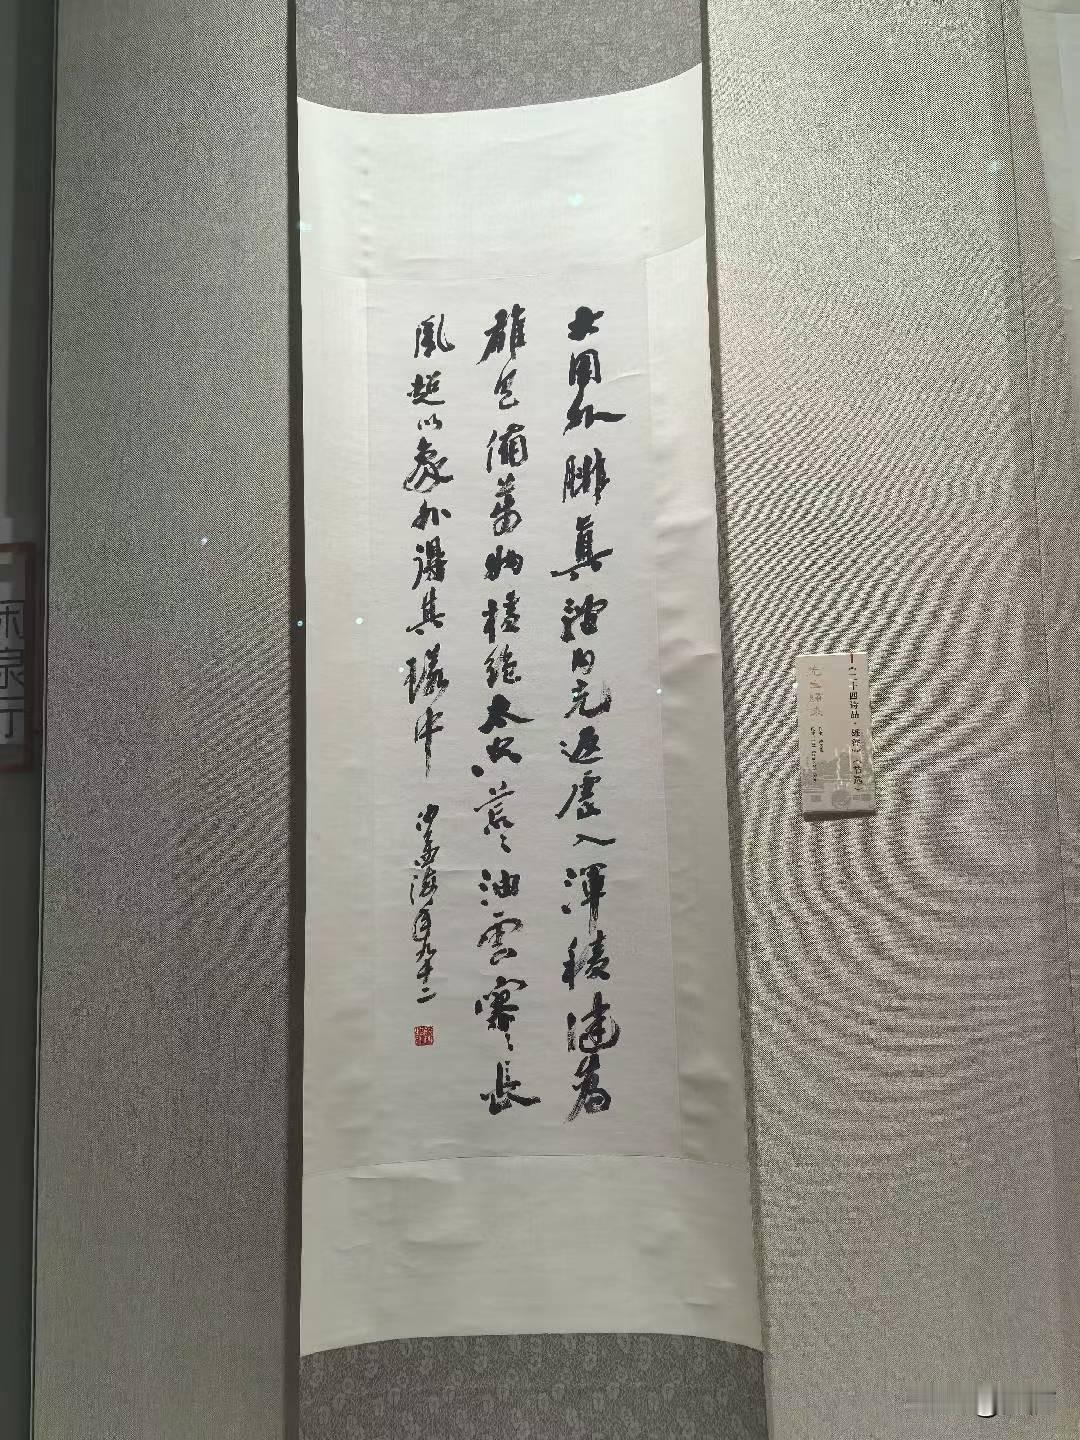 大用外腓真體内充返虚入渾積健為
雄具備萬物橫絶太空荒〻油雲寥〻長
風超以象外得其環中
沙孟海年九十二
《二十四诗品·雄浑》（节选）